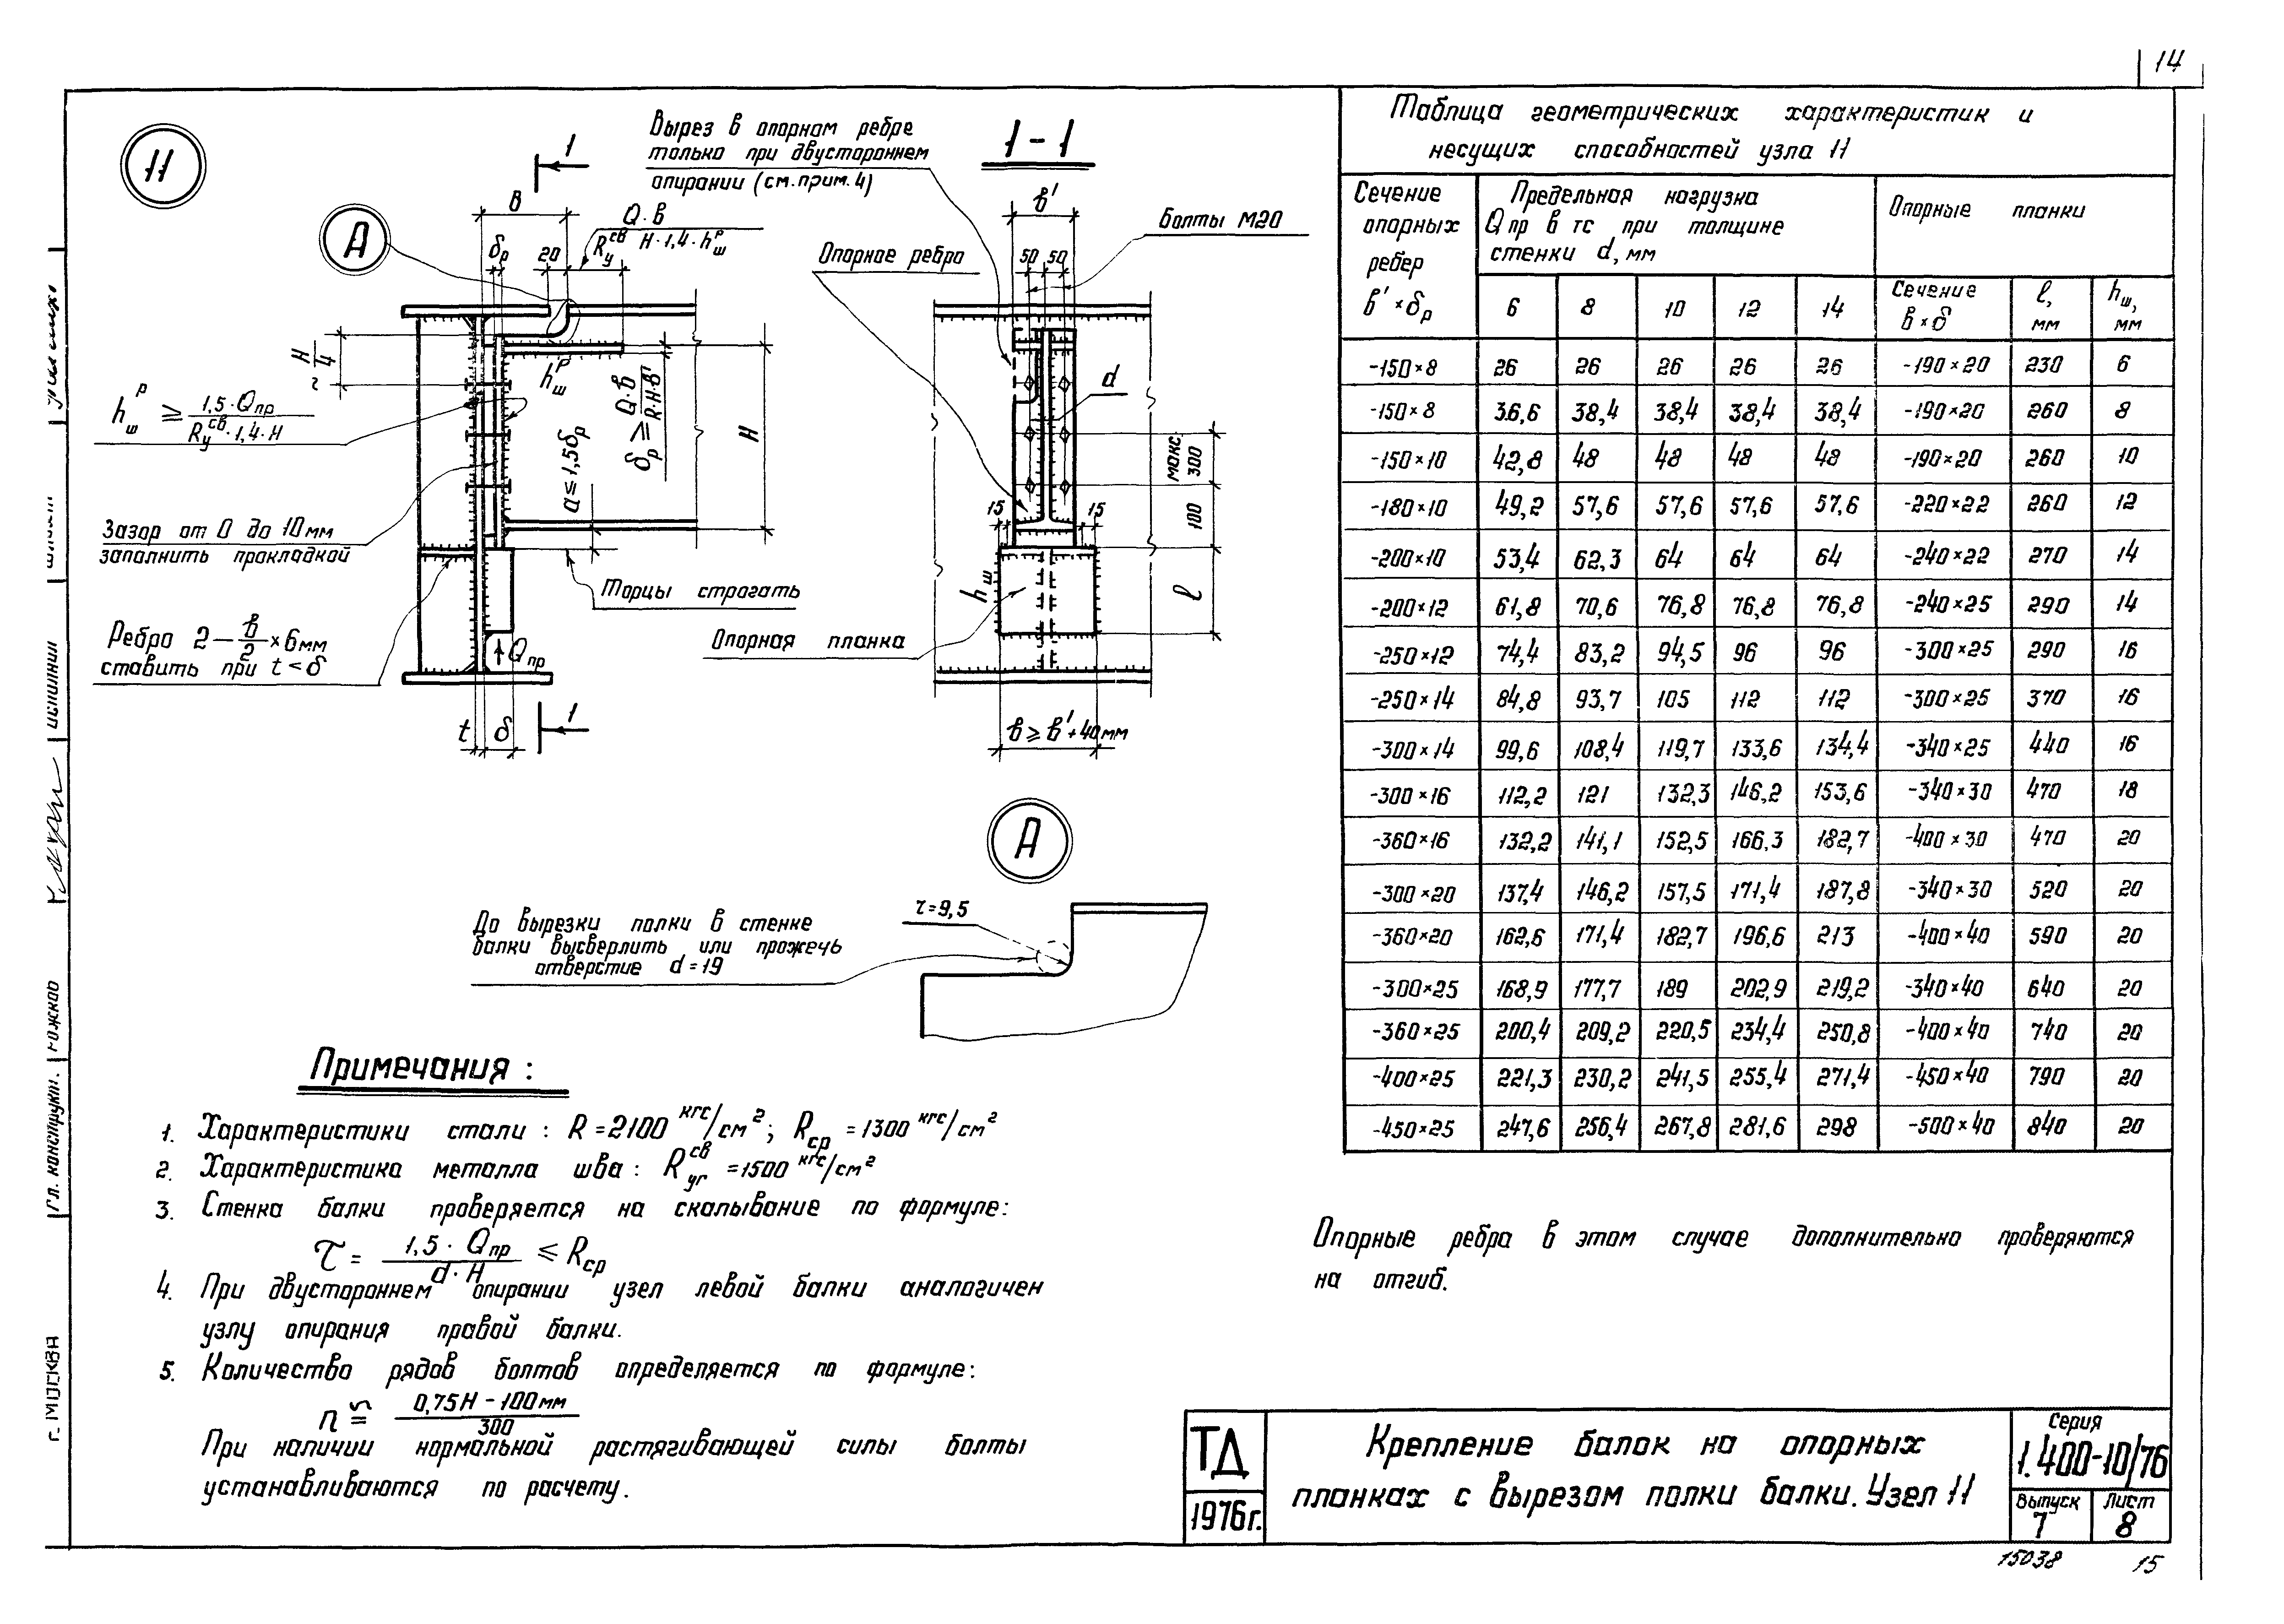 14
11
Вырез в опорном ребре
только при двустороннем
опирании (см. прим. 4)
1
в
А
Q·в
Rу св H·1,4·hш р
δр
20
H
4
hш р
hш р ≥ 1,5·Qпр
Rу св·1,4·H
a ≤ 1,5δр
δр ≥ Q·в
R·H·в'
H
Зазор от 0 до 10 мм
заполнить прокладкой
Торцы строгать
Ребро 2 – в/2 × 6 мм
ставить при t < δ
Qпр
t
δ
1
1-1
в'
Болты М20
Опорное ребро
50
50
d
макс.
300
100
15
15
hш
l
Опорная планка
в ≥ в' + 40 мм
А
До вырезки полки в стенке
балки высверлить или прожечь
отверстие d = 19
r = 9,5
Примечания:
1. Характеристики стали: R = 2100 кгс/см²; Rср = 1300 кгс/см²
2. Характеристика металла шва: Rуг св = 1500 кгс/см²
3. Стенка балки проверяется на скалывание по формуле:
τ = 1,5·Qпр
d·H ≤ Rср
4. При двустороннем опирании узел левой балки аналогичен
узлу опирания правой балки.
5. Количество рядов болтов определяется по формуле:
n ≅ 0,75H – 100 мм
300
При наличии нормальной растягивающей силы болты
устанавливаются по расчету.
Таблица геометрических характеристик и
несущих способностей узла 11
Сечение опорных ребер в' × δр
Предельная нагрузка Qпр в тс при толщине стенки d, мм
Опорные планки
6 8 10 12 14 Сечение в × δ l, мм hш, мм
-150×8 26 26 26 26 26 -190×20 230 6
-150×8 36,6 38,4 38,4 38,4 38,4 -190×20 260 8
-150×10 42,8 48 48 48 48 -190×20 260 10
-180×10 49,2 57,6 57,6 57,6 57,6 -220×22 260 12
-200×10 53,4 62,3 64 64 64 -240×22 270 14
-200×12 61,8 70,6 76,8 76,8 76,8 -240×25 290 14
-250×12 74,4 83,2 94,5 96 96 -300×25 290 16
-250×14 84,8 93,7 105 112 112 -300×25 370 16
-300×14 99,6 108,4 119,7 133,6 134,4 -340×25 440 16
-300×16 112,2 121 132,3 146,2 153,6 -340×30 470 18
-360×16 132,2 141,1 152,5 166,3 182,7 -400×30 470 20
-300×20 137,4 146,2 157,5 171,4 187,8 -340×30 520 20
-360×20 162,6 171,4 182,7 196,6 213 -400×40 590 20
-300×25 168,9 177,7 189 202,9 219,2 -340×40 640 20
-360×25 200,4 209,2 220,5 234,4 250,8 -400×40 740 20
-400×25 221,3 230,2 241,5 255,4 271,4 -450×40 790 20
-450×25 247,6 256,4 267,8 281,6 298 -500×40 840 20
Опорные ребра в этом случае дополнительно проверяются
на отгиб.
ТД
1976г.
Крепление балок на опорных
планках с вырезом полки балки. Узел 11
Серия
1.400-10/76
Выпуск
7
Лист
8
15038
15
г. МОСКВА
Гл. конструкт.